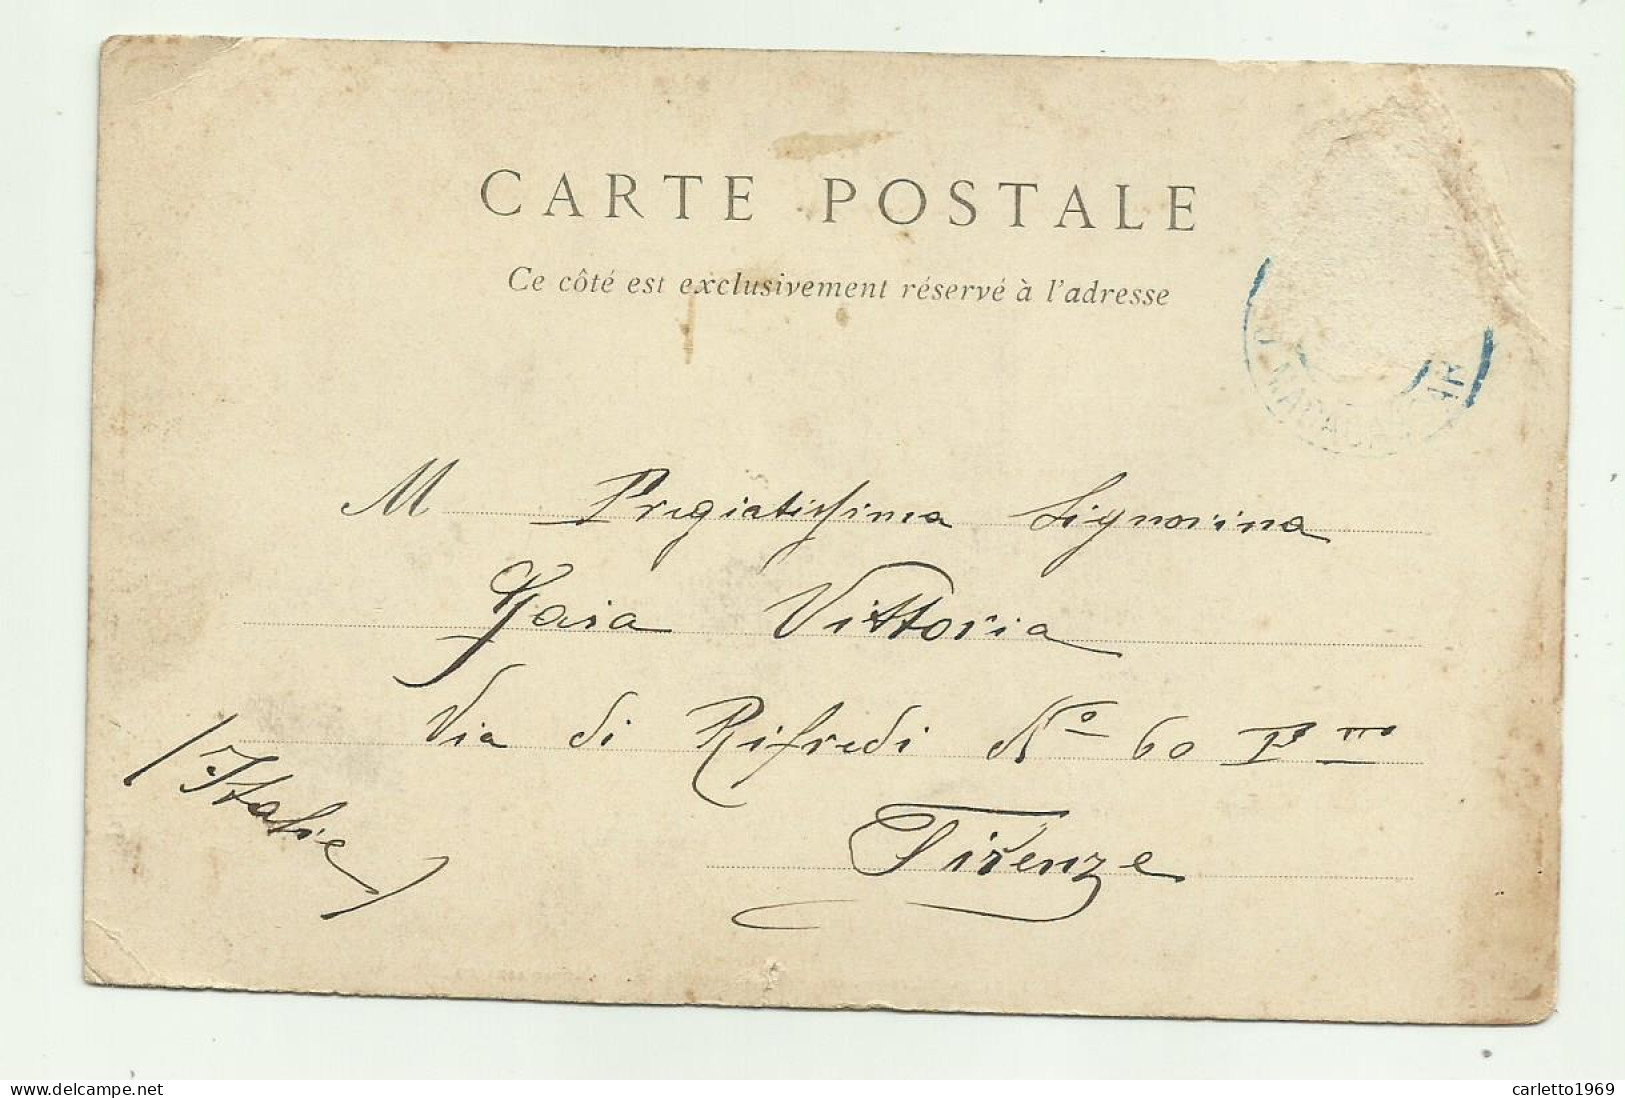 CARTE POSTALE
Ce côté est exclusivement réservé à l'adresse
M Pregiatissima Signorina
Gaia Vittoria
Via di Rifredi No 60 Pmo
Firenze
(Italie)
delcampe.net
carletto1969